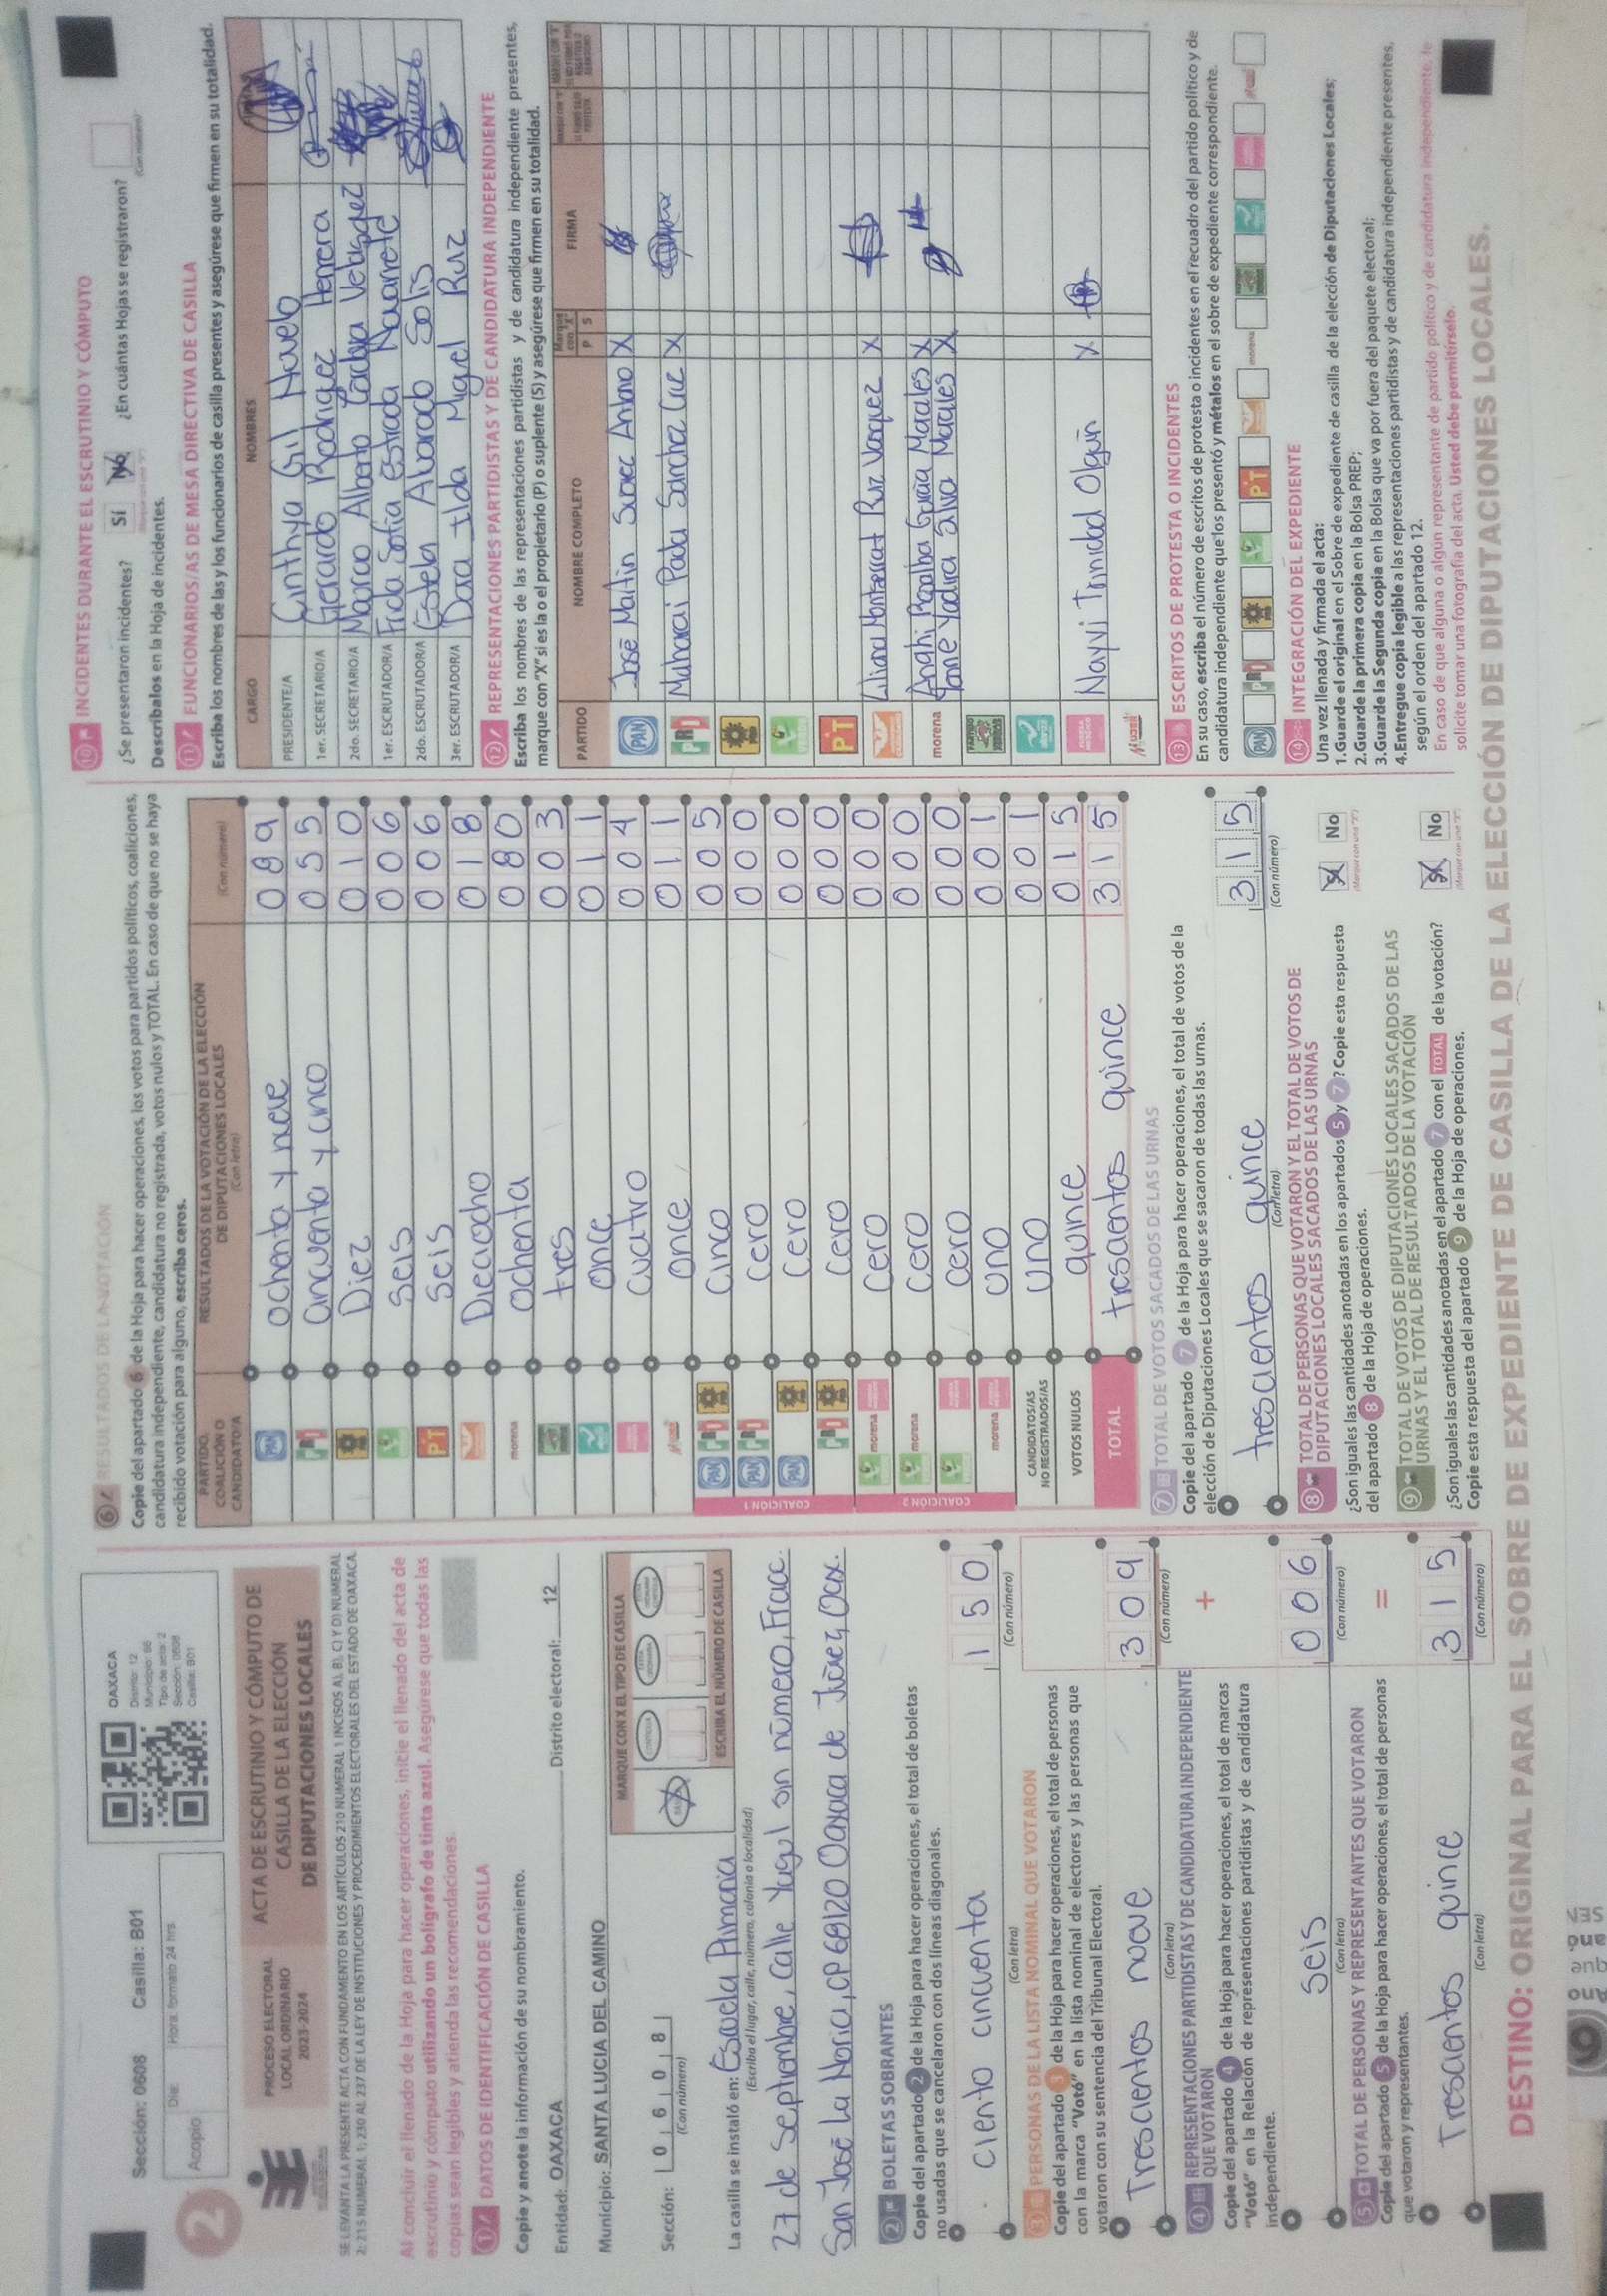 Sección: 0608 Casilla: B01
OAXACA
Distrito: 12
Municipio: 86
Tipo de acta: 2
Sección: 0608
Casilla: B01
2
Acopio
Día:
Hora: formato 24 hrs.
PROCESO ELECTORAL
LOCAL ORDINARIO
2023-2024
ACTA DE ESCRUTINIO Y CÓMPUTO DE
CASILLA DE LA ELECCIÓN
DE DIPUTACIONES LOCALES
SE LEVANTA LA PRESENTE ACTA CON FUNDAMENTO EN LOS ARTÍCULOS 210 NUMERAL 1 INCISOS A), B), C) Y D) NUMERAL
2; 215 NUMERAL 1; 230 AL 237 DE LA LEY DE INSTITUCIONES Y PROCEDIMIENTOS ELECTORALES DEL ESTADO DE OAXACA.
Al concluir el llenado de la Hoja para hacer operaciones, inicie el llenado del acta de
escrutinio y cómputo utilizando un bolígrafo de tinta azul. Asegúrese que todas las
copias sean legibles y atienda las recomendaciones.
1 DATOS DE IDENTIFICACIÓN DE CASILLA
Copie y anote la información de su nombramiento.
Entidad: OAXACA Distrito electoral: 12
Municipio: SANTA LUCIA DEL CAMINO
MARQUE CON X EL TIPO DE CASILLA
Sección: 0 6 0 8
(Con número)
ESCRIBA EL NÚMERO DE CASILLA
La casilla se instaló en: Escuela Primaria
(Escriba el lugar, calle, número, colonia o localidad)
27 de Septiembre, Calle Yagul sin número, Fracc.
San José la Noria, CP 68120 Oaxaca de Juárez, Oax.
2 BOLETAS SOBRANTES
Copie del apartado 2 de la Hoja para hacer operaciones, el total de boletas
no usadas que se cancelaron con dos líneas diagonales.
ciento cincuenta 150
(Con letra) (Con número)
3 PERSONAS DE LA LISTA NOMINAL QUE VOTARON
Copie del apartado 3 de la Hoja para hacer operaciones, el total de personas
con la marca "Votó" en la lista nominal de electores y las personas que
votaron con su sentencia del Tribunal Electoral.
Trescientos nueve 309
(Con letra) (Con número)
4 REPRESENTACIONES PARTIDISTAS Y DE CANDIDATURA INDEPENDIENTE
QUE VOTARON
+
Copie del apartado 4 de la Hoja para hacer operaciones, el total de marcas
"Votó" en la Relación de representaciones partidistas y de candidatura
independiente.
seis 006
(Con letra) (Con número)
5 TOTAL DE PERSONAS Y REPRESENTANTES QUE VOTARON
=
Copie del apartado 5 de la Hoja para hacer operaciones, el total de personas
que votaron y representantes.
Trescientos quince 315
(Con letra) (Con número)
6 RESULTADOS DE LA VOTACIÓN
Copie del apartado 6 de la Hoja para hacer operaciones, los votos para partidos políticos, coaliciones,
candidatura independiente, candidatura no registrada, votos nulos y TOTAL. En caso de que no se haya
recibido votación para alguno, escriba ceros.
PARTIDO, COALICIÓN O CANDIDATO/A
RESULTADOS DE LA VOTACIÓN DE LA ELECCIÓN DE DIPUTACIONES LOCALES
(Con letra) (Con número)
PAN ochenta y nueve 089
PRI cincuenta y cinco 055
Diez 010
seis 006
PT seis 006
Dieciocho 018
morena ochenta 080
tres 003
once 011
cuatro 004
once 011
COALICIÓN 1
PAN PRI cinco 005
PAN PRI cero 000
PAN cero 000
PRI cero 000
COALICIÓN 2
morena cero 000
morena cero 000
cero 000
morena uno 001
CANDIDATOS/AS NO REGISTRADOS/AS uno 001
VOTOS NULOS quince 015
TOTAL trescientos quince 315
7 TOTAL DE VOTOS SACADOS DE LAS URNAS
Copie del apartado 7 de la Hoja para hacer operaciones, el total de votos de la
elección de Diputaciones Locales que se sacaron de todas las urnas.
trescientos quince 315
(Con letra) (Con número)
8 TOTAL DE PERSONAS QUE VOTARON Y EL TOTAL DE VOTOS DE
DIPUTACIONES LOCALES SACADOS DE LAS URNAS
¿Son iguales las cantidades anotadas en los apartados 5 y 7? Copie esta respuesta
del apartado 8 de la Hoja de operaciones.
Sí No
(Marque con una "X")
9 TOTAL DE VOTOS DE DIPUTACIONES LOCALES SACADOS DE LAS
URNAS Y EL TOTAL DE RESULTADOS DE LA VOTACIÓN
¿Son iguales las cantidades anotadas en el apartado 7 con el TOTAL de la votación?
Copie esta respuesta del apartado 9 de la Hoja de operaciones.
Sí No
(Marque con una "X")
10 INCIDENTES DURANTE EL ESCRUTINIO Y CÓMPUTO
¿Se presentaron incidentes? Sí No ¿En cuántas Hojas se registraron?
(Marque con una "X") (Con número)
Descríbalos en la Hoja de incidentes.
11 FUNCIONARIOS/AS DE MESA DIRECTIVA DE CASILLA
Escriba los nombres de las y los funcionarios de casilla presentes y asegúrese que firmen en su totalidad.
CARGO NOMBRES
PRESIDENTE/A Cinthya Gil Novelo
1er. SECRETARIO/A Gerardo Rodriguez Herrera
2do. SECRETARIO/A Marco Alberto Velasquez
1er. ESCRUTADOR/A Frida Sofia Estrada Navarrete
2do. ESCRUTADOR/A Estela Alvarado Solis
3er. ESCRUTADOR/A Dora Ilda Miguel Ruiz
12 REPRESENTACIONES PARTIDISTAS Y DE CANDIDATURA INDEPENDIENTE
Escriba los nombres de las representaciones partidistas y de candidatura independiente presentes,
marque con "X" si es la o el propietario (P) o suplente (S) y asegúrese que firmen en su totalidad.
PARTIDO NOMBRE COMPLETO Marque con "X" P S FIRMA
PAN José Martin X
PRI Sanchez Cruz X
PT
Liliana Montserrat Ruiz Vasquez X
morena Anahi Morales X
Ione Yadira Silva Morales X
Nayvi Trinidad Olguin X
13 ESCRITOS DE PROTESTA O INCIDENTES
En su caso, escriba el número de escritos de protesta o incidentes en el recuadro del partido político y de
candidatura independiente que los presentó y métalos en el sobre de expediente correspondiente.
PAN PRI PT morena
14 INTEGRACIÓN DEL EXPEDIENTE
Una vez llenada y firmada el acta:
1.Guarde el original en el Sobre de expediente de casilla de la elección de Diputaciones Locales;
2.Guarde la primera copia en la Bolsa PREP;
3.Guarde la Segunda copia en la Bolsa que va por fuera del paquete electoral;
4.Entregue copia legible a las representaciones partidistas y de candidatura independiente presentes,
según el orden del apartado 12.
En caso de que alguna o algún representante de partido político y de candidatura independiente, le
solicite tomar una fotografía del acta. Usted debe permitírselo.
DESTINO: ORIGINAL PARA EL SOBRE DE EXPEDIENTE DE CASILLA DE LA ELECCIÓN DE DIPUTACIONES LOCALES.